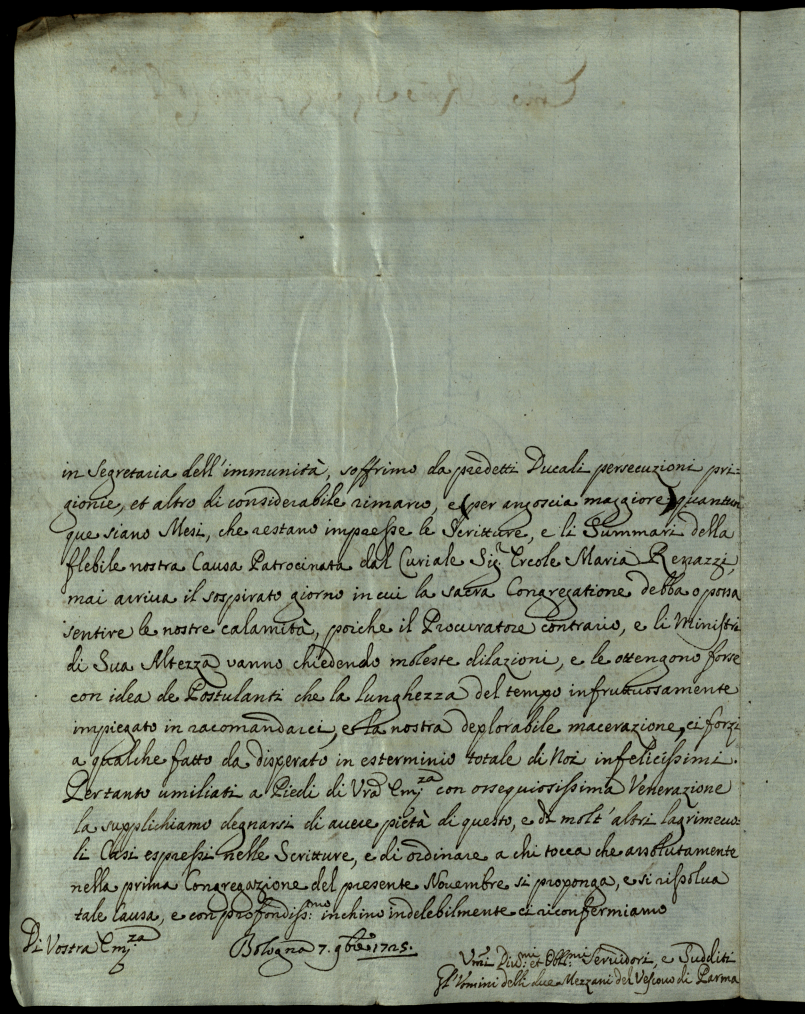 in Segretaria dell'immunità, soffrimo da predetti Ducali persecuzioni pri=
gionie, et altro di considerabile rimarco, e (per angoscia maggiore) quantun
que siano Mesi, che restano impresse le Scritture, e li Summari della
flebile nostra Causa Patrocinata dal Curiale Sig.r Ercole Maria Renazzi,
mai arriva il sospirato giorno in cui la sacra Congregatione debba o possa
sentire le nostre calamità, poiche il Procuratore contrario, e li Ministri
di Sua Altezza vanno chiedendo moleste dilazioni, e le ottengono forse
con idea de Postulanti che la lunghezza del tempo infruttuosamente
impiegato in racomandarci, e la nostra deplorabile macerazione, ci forzi
a qualche fatto da disperato in esterminio totale di Noi infelicissimi.
Pertanto umiliati a Piedi di Vra Emza con ossequiosissima Venerazione
la supplichiamo degnarsi di avere pietà di questo, e di molt'altri lagrimevo=
li Casi espressi nelle Scritture, e di ordinare a chi tocca che assolutamente
nella prima Congregazione del presente Novembre si proponga, e si rissolva
tale Causa, e con profondiss:mo inchino indelebilmente ci riconfermiamo
Di Vostra Emza Bologna 7. 9bre 1725.
Umi Divmi et Obblmi Servidori, e Sudditi
Gl'Uomini delli due Mezzani del Vescovo di Parma